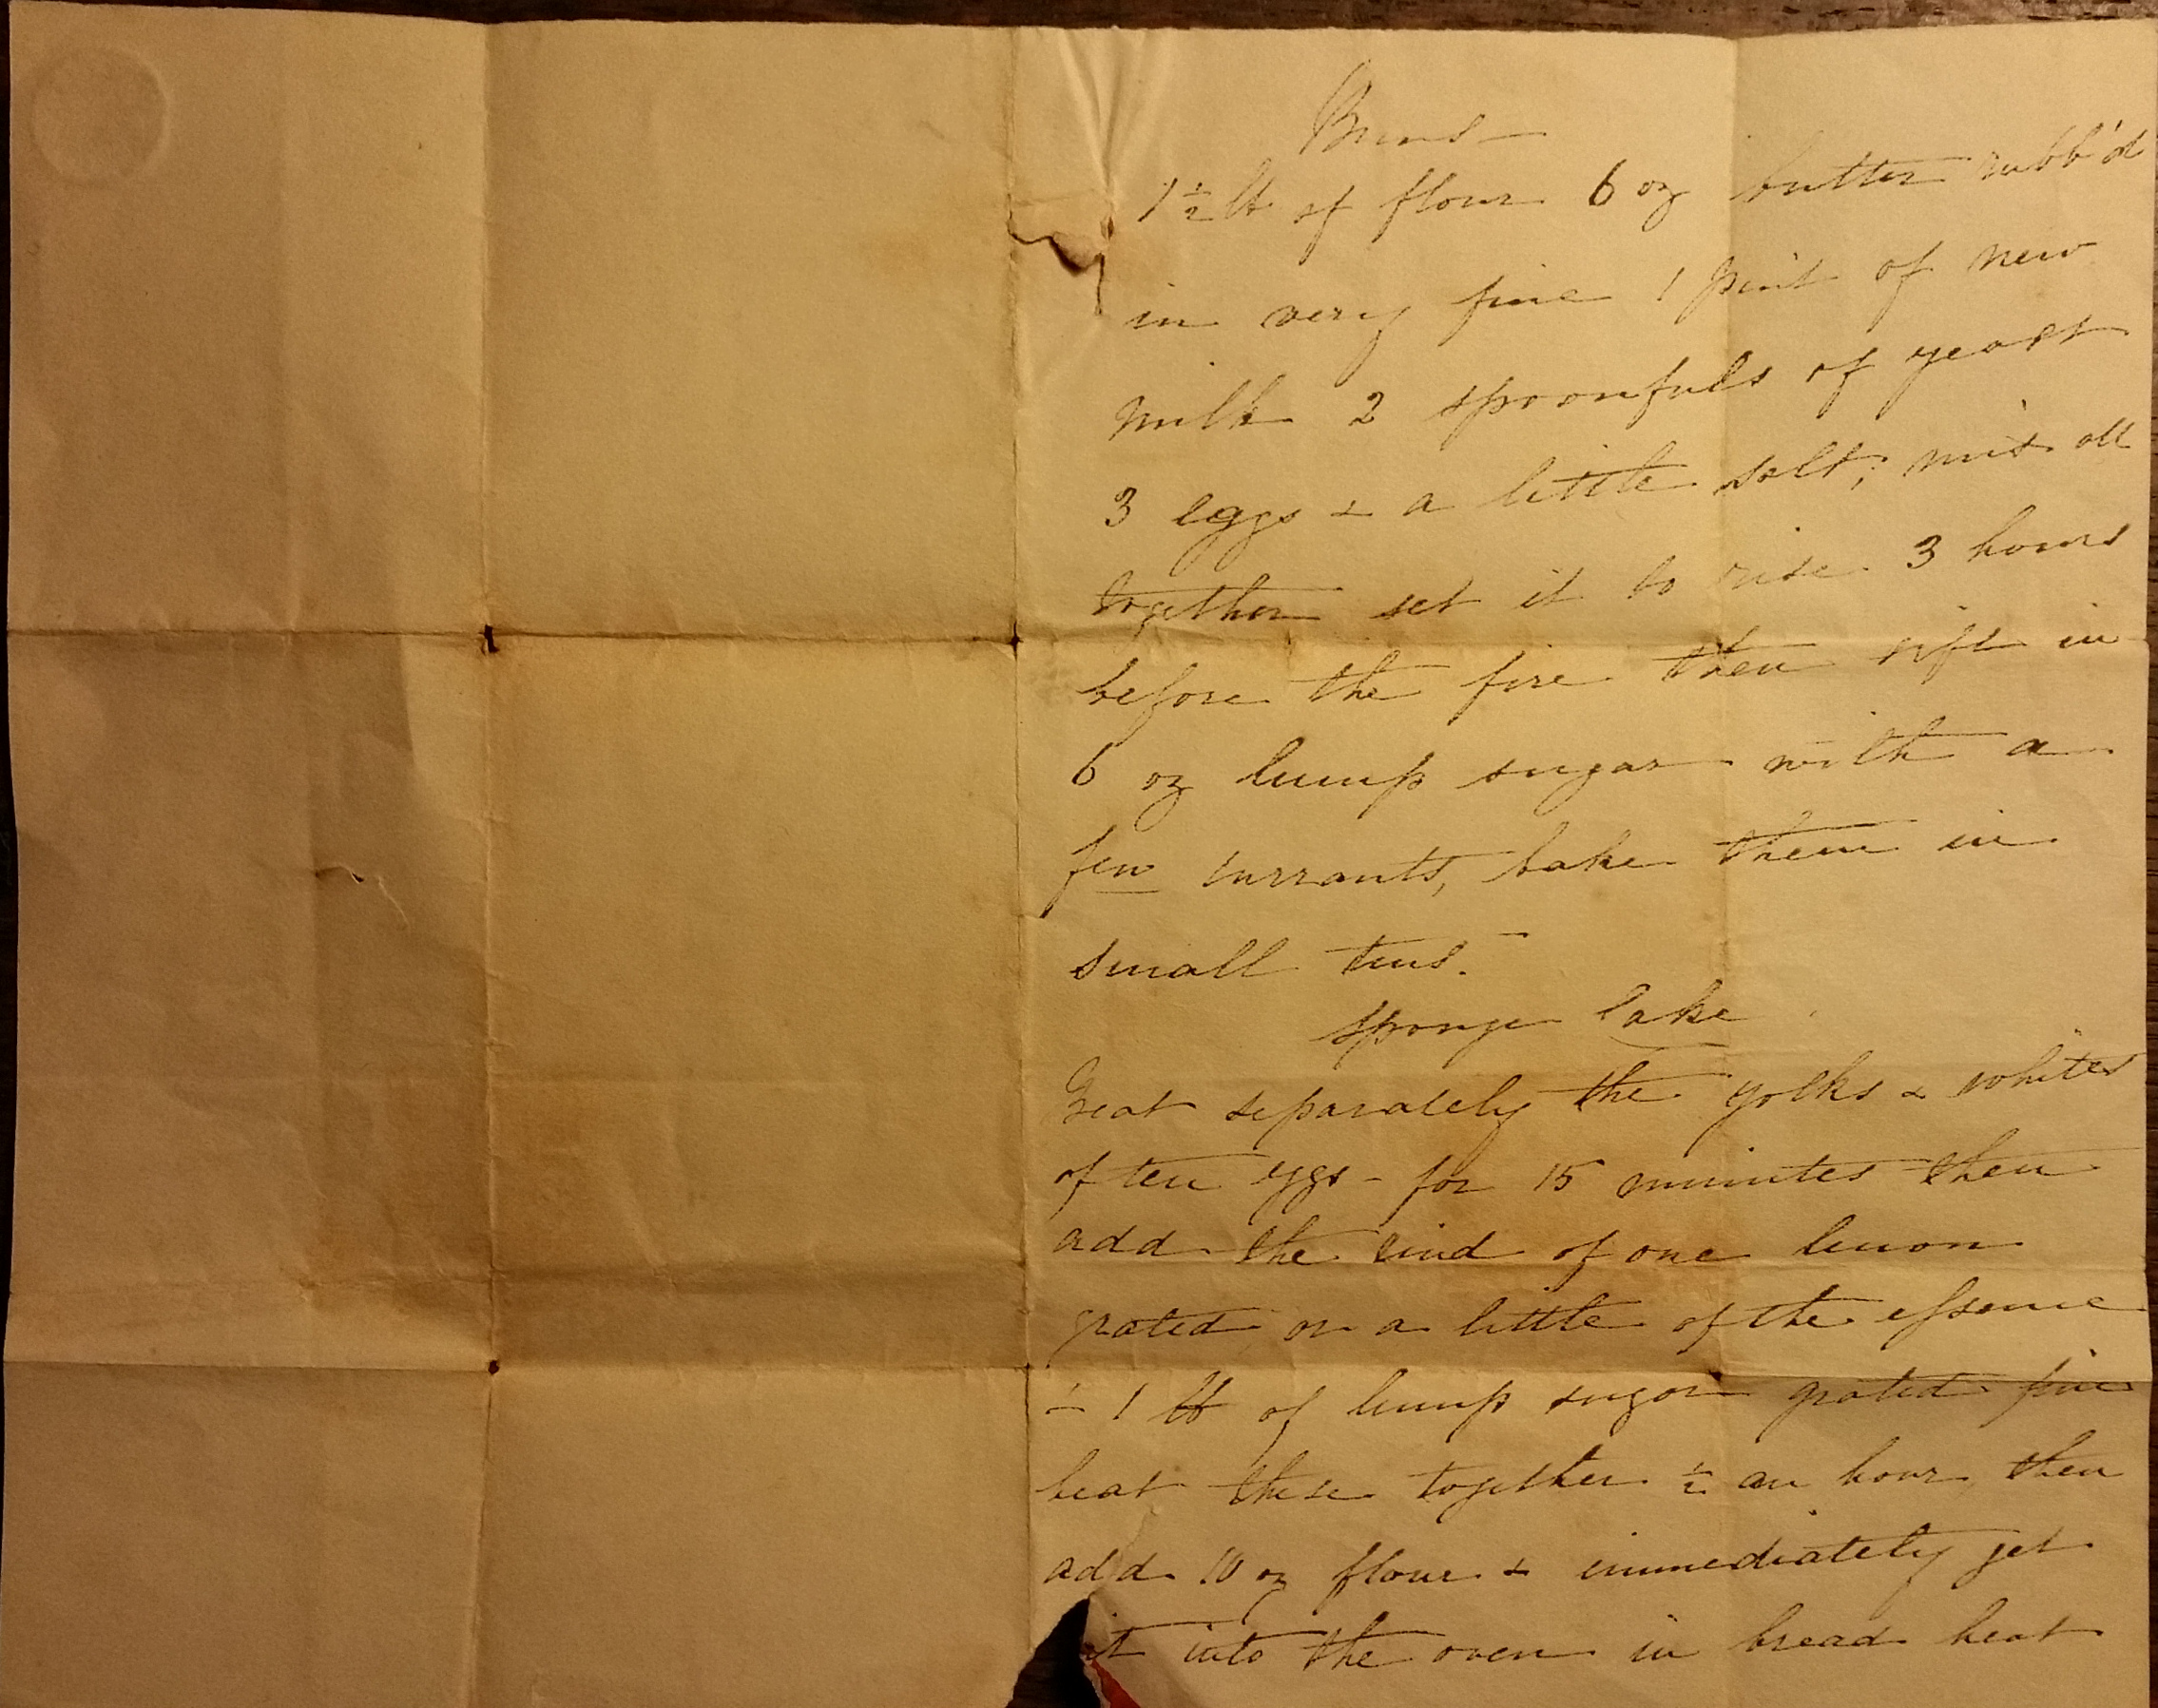 Buns —
1 ½ lb of flour 6 oz butter rubb'd
in very fine 1 pint of new
milk 2 spoonfuls of yeast
3 eggs & a little salt; mix all
together set it to rise 3 hours
before the fire then sift in
6 oz lump sugar with a
few currants, bake them in
small tins. —
Sponge Cake
Beat separately the yolks & whites
of ten eggs - for 15 minutes then
add the rind of one lemon
grated, or a little of the essence
& 1 lb of lump sugar grated fine
beat these together ½ an hour then
add 10 oz flour & immediately get
it into the oven in bread heat